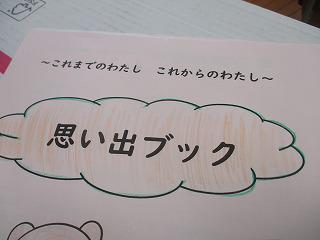 ～これまでのわたし　これからのわたし～
思い出ブック